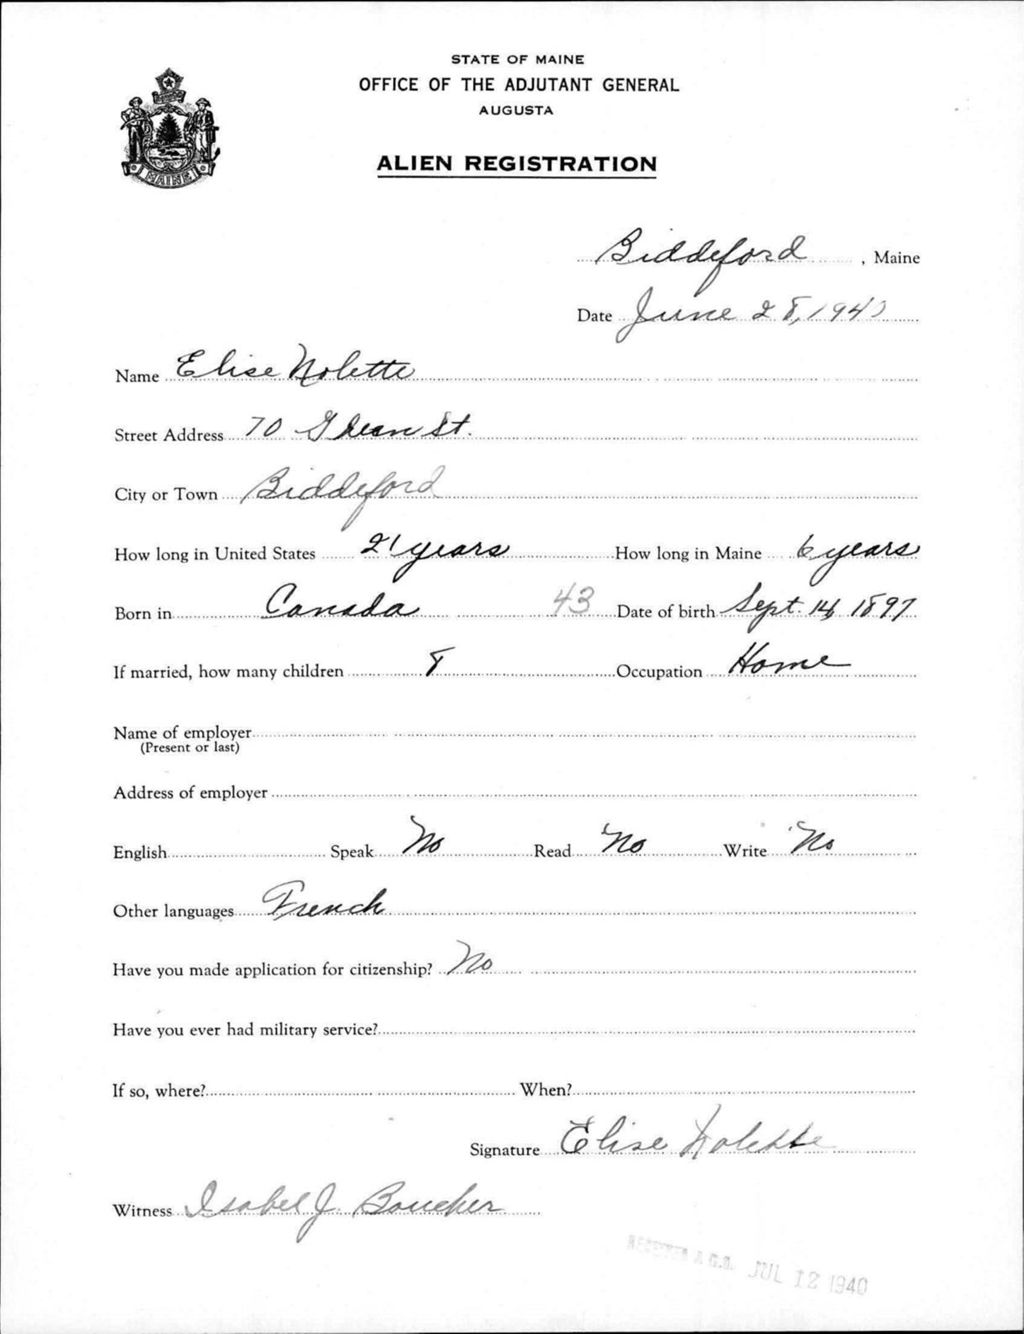 STATE OF MAINE
OFFICE OF THE ADJUTANT GENERAL
AUGUSTA
ALIEN REGISTRATION
MAINE
Biddeford, Maine
Date June 28, 1940
Name Elise Nolette
Street Address 70 St.
City or Town Biddeford
How long in United States 21 years How long in Maine 6 years
Born in Canada 43 Date of birth Sept. 14, 1897
If married, how many children 8 Occupation Home
Name of employer
(Present or last)
Address of employer
English Speak No Read No Write No
Other languages French
Have you made application for citizenship? No
Have you ever had military service?
If so, where? When?
Signature Elise Nolette
Witness Isabel J. Boucher
RECEIVED A.G.O. JUL 12 1940